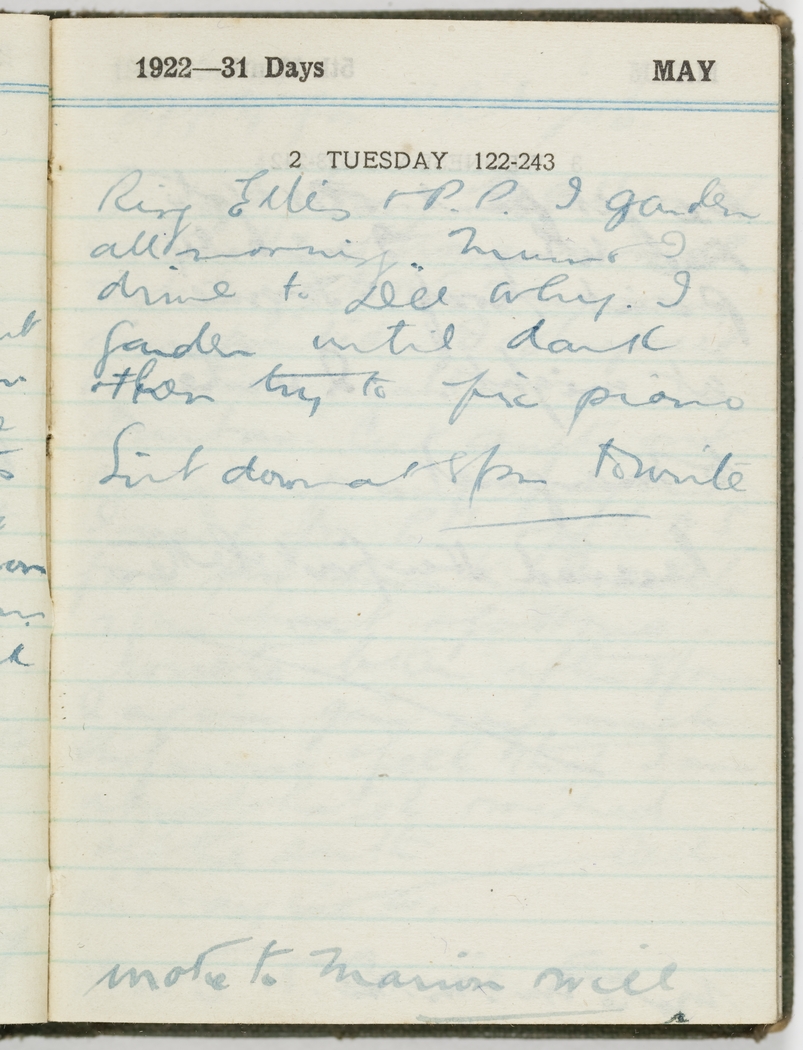 1922—31 Days MAY
2 TUESDAY 122-243
Ring Ellis + P.P. I garden
all morning. Mum & I
drive to Dee Why. I
garden until dark
then try to fix piano
Sit down at 8pm to write
wrote to Marion Will